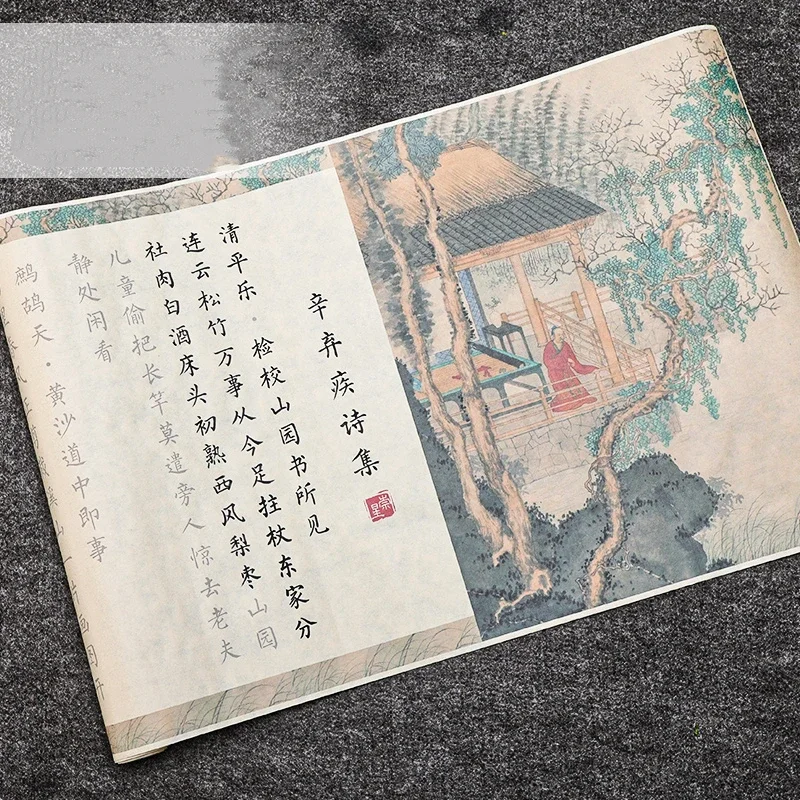 辛弃疾诗集
崇星
清平乐·检校山园书所见
连云松竹万事从今足拄杖东家分
社肉白酒床头初熟西风梨枣山园
儿童偷把长竿莫遣旁人惊去老夫
静处闲看
鹧鸪天·黄沙道中即事
山一片画图开